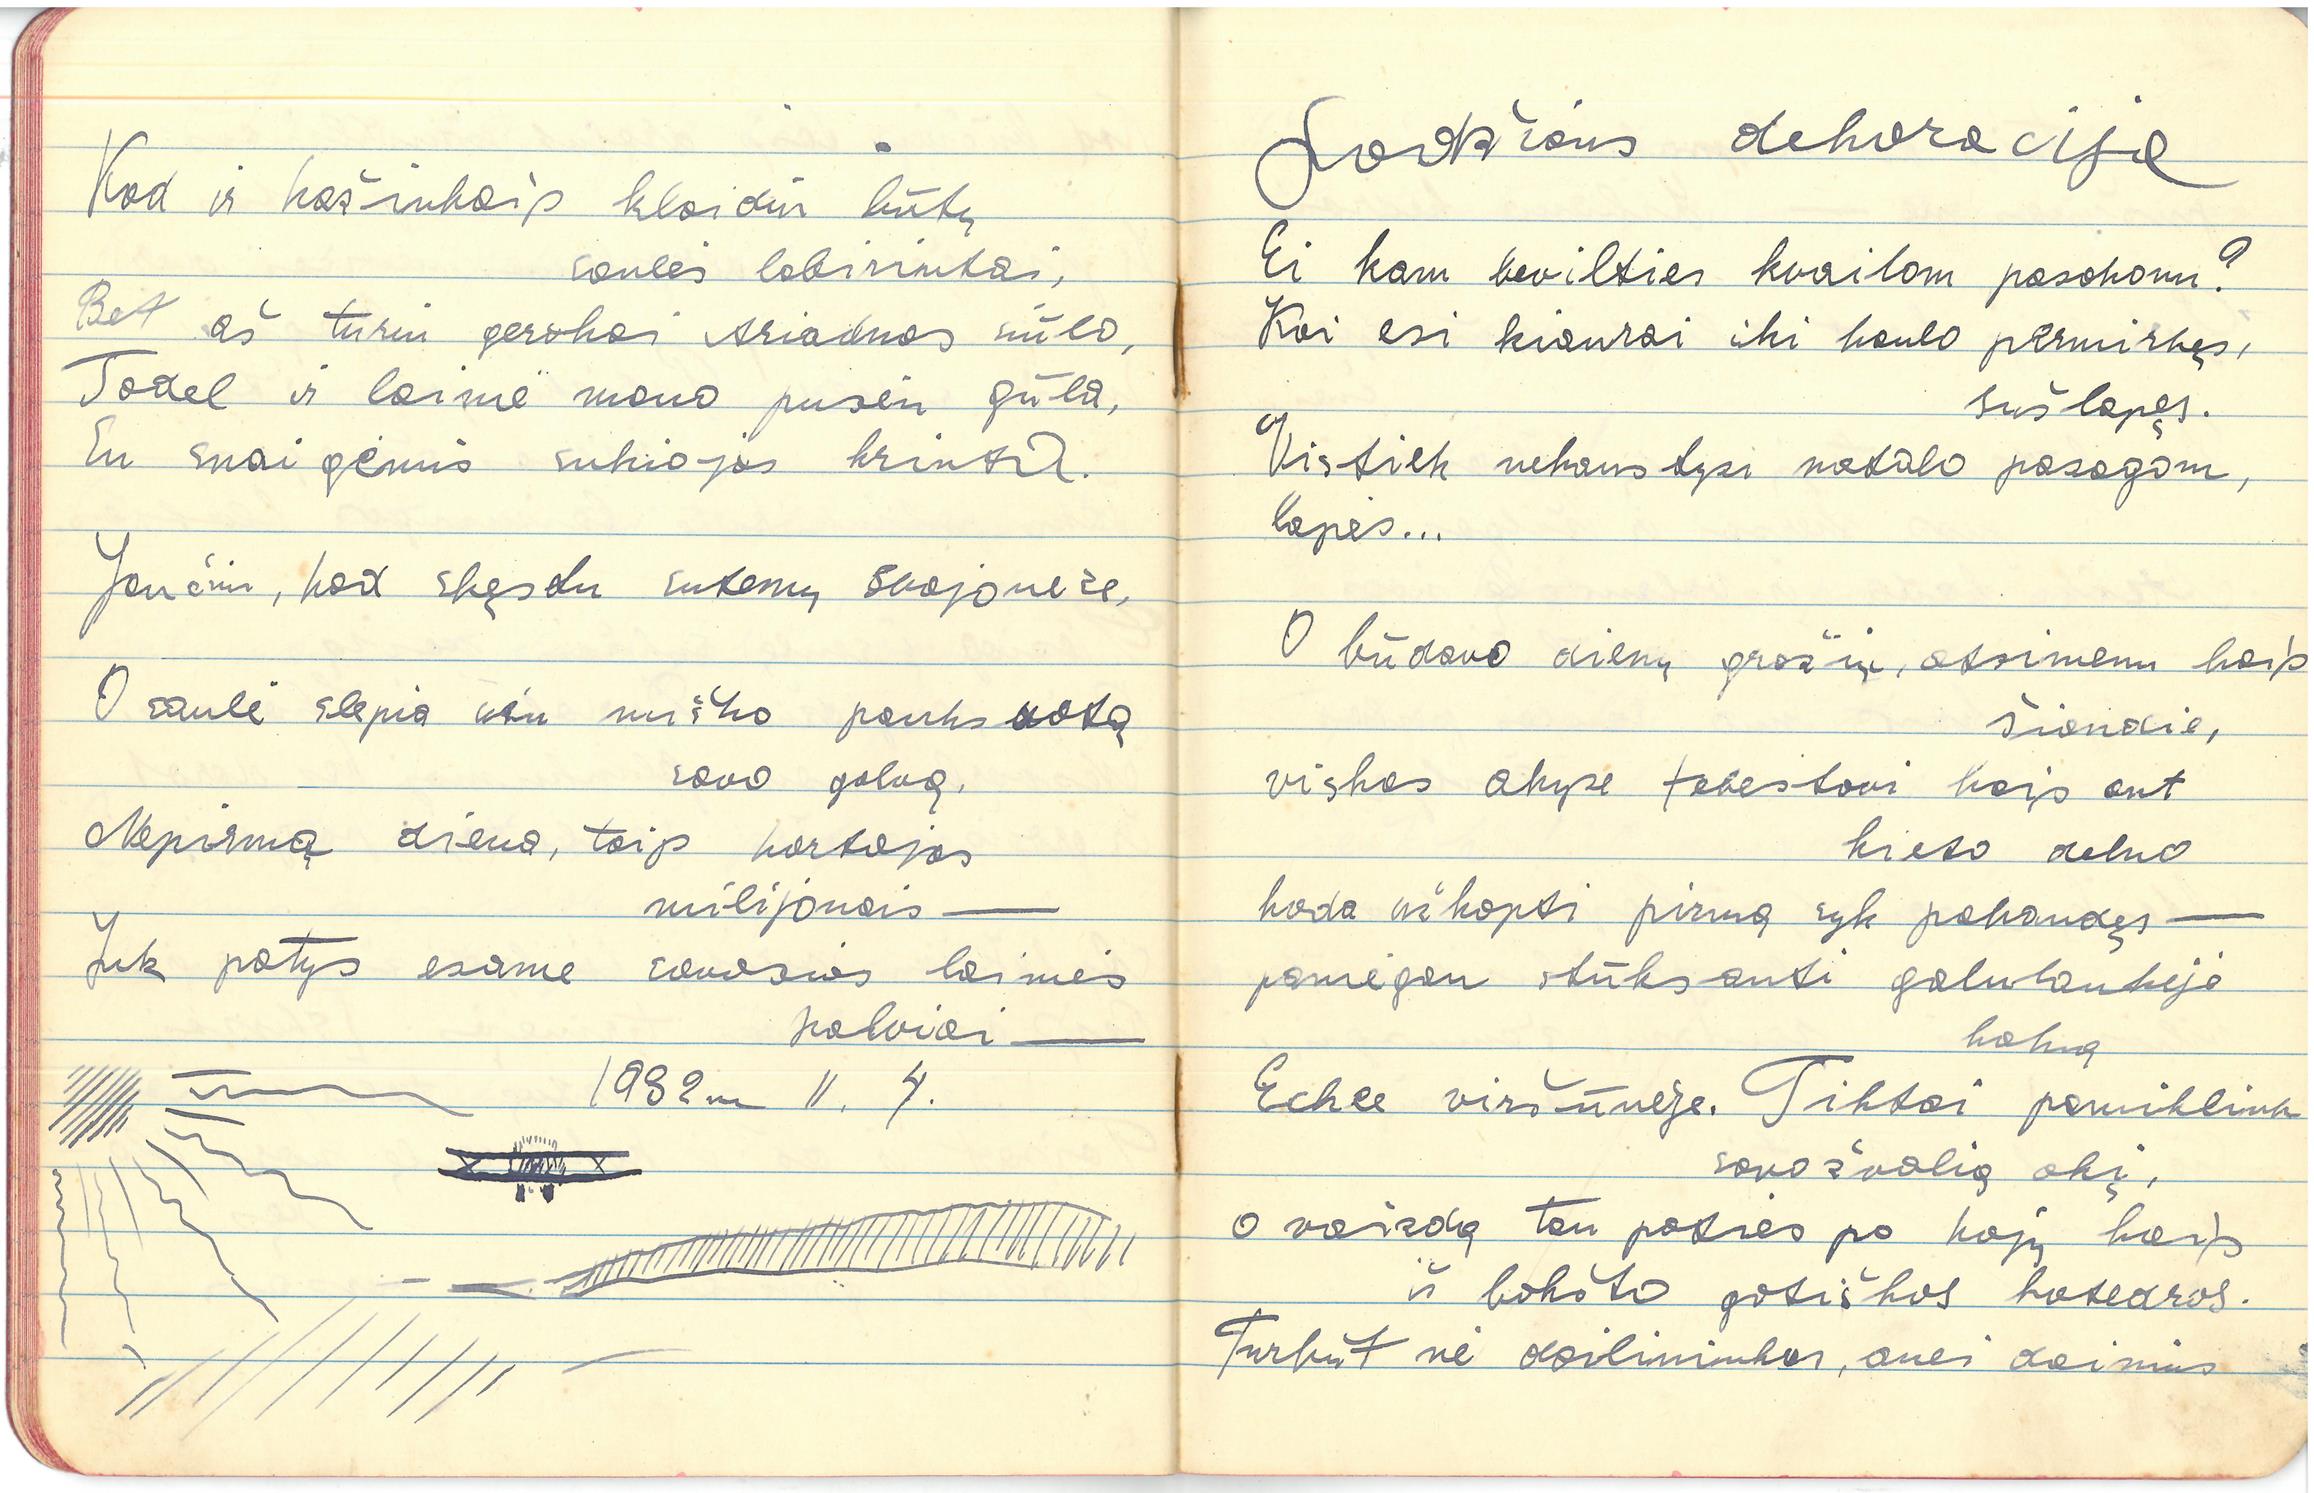 Kad ir kažinkaip klaidūs būtų
saulės labirintai,
Bet aš turiu gerokai Ariadnos siūlo,
Todel ir laimė mano pusėn gūla,
En snaigėmis sukiojas krintā.
Jaučiu, kad skęstu sutemų svajonėse,
O saulė slepia už miško pauksuotą
savo galvą.
Nepirmą diena, taip kartojas
milijonais —
Juk patys esame savosios laimės
kalviai —
1932 m II. 4.
dekoracija
Ei kam bevilties kvailam pasakoni?
Kai esi kiaurai iki kaulo permirkęs,
sušlapęs.
Vistiek nekaustysi natalo pasagom,
lapės...
O būdavo dienų gražių, atsimenu kaip
šiandie,
viskas akyse tebestovi kaip ant
kieto delno
kada užkopti pirmą syk pabandęs —
pamėgau stūksanti galulaukėje
kalną
Echee viršūnėje. Tiktai pamiklink
savo žvalią akį,
o vaizdą tau paties po kojų kaip
iš bokšto gotiškos katedros.
Turbūt nė dailininkas, anei dainius